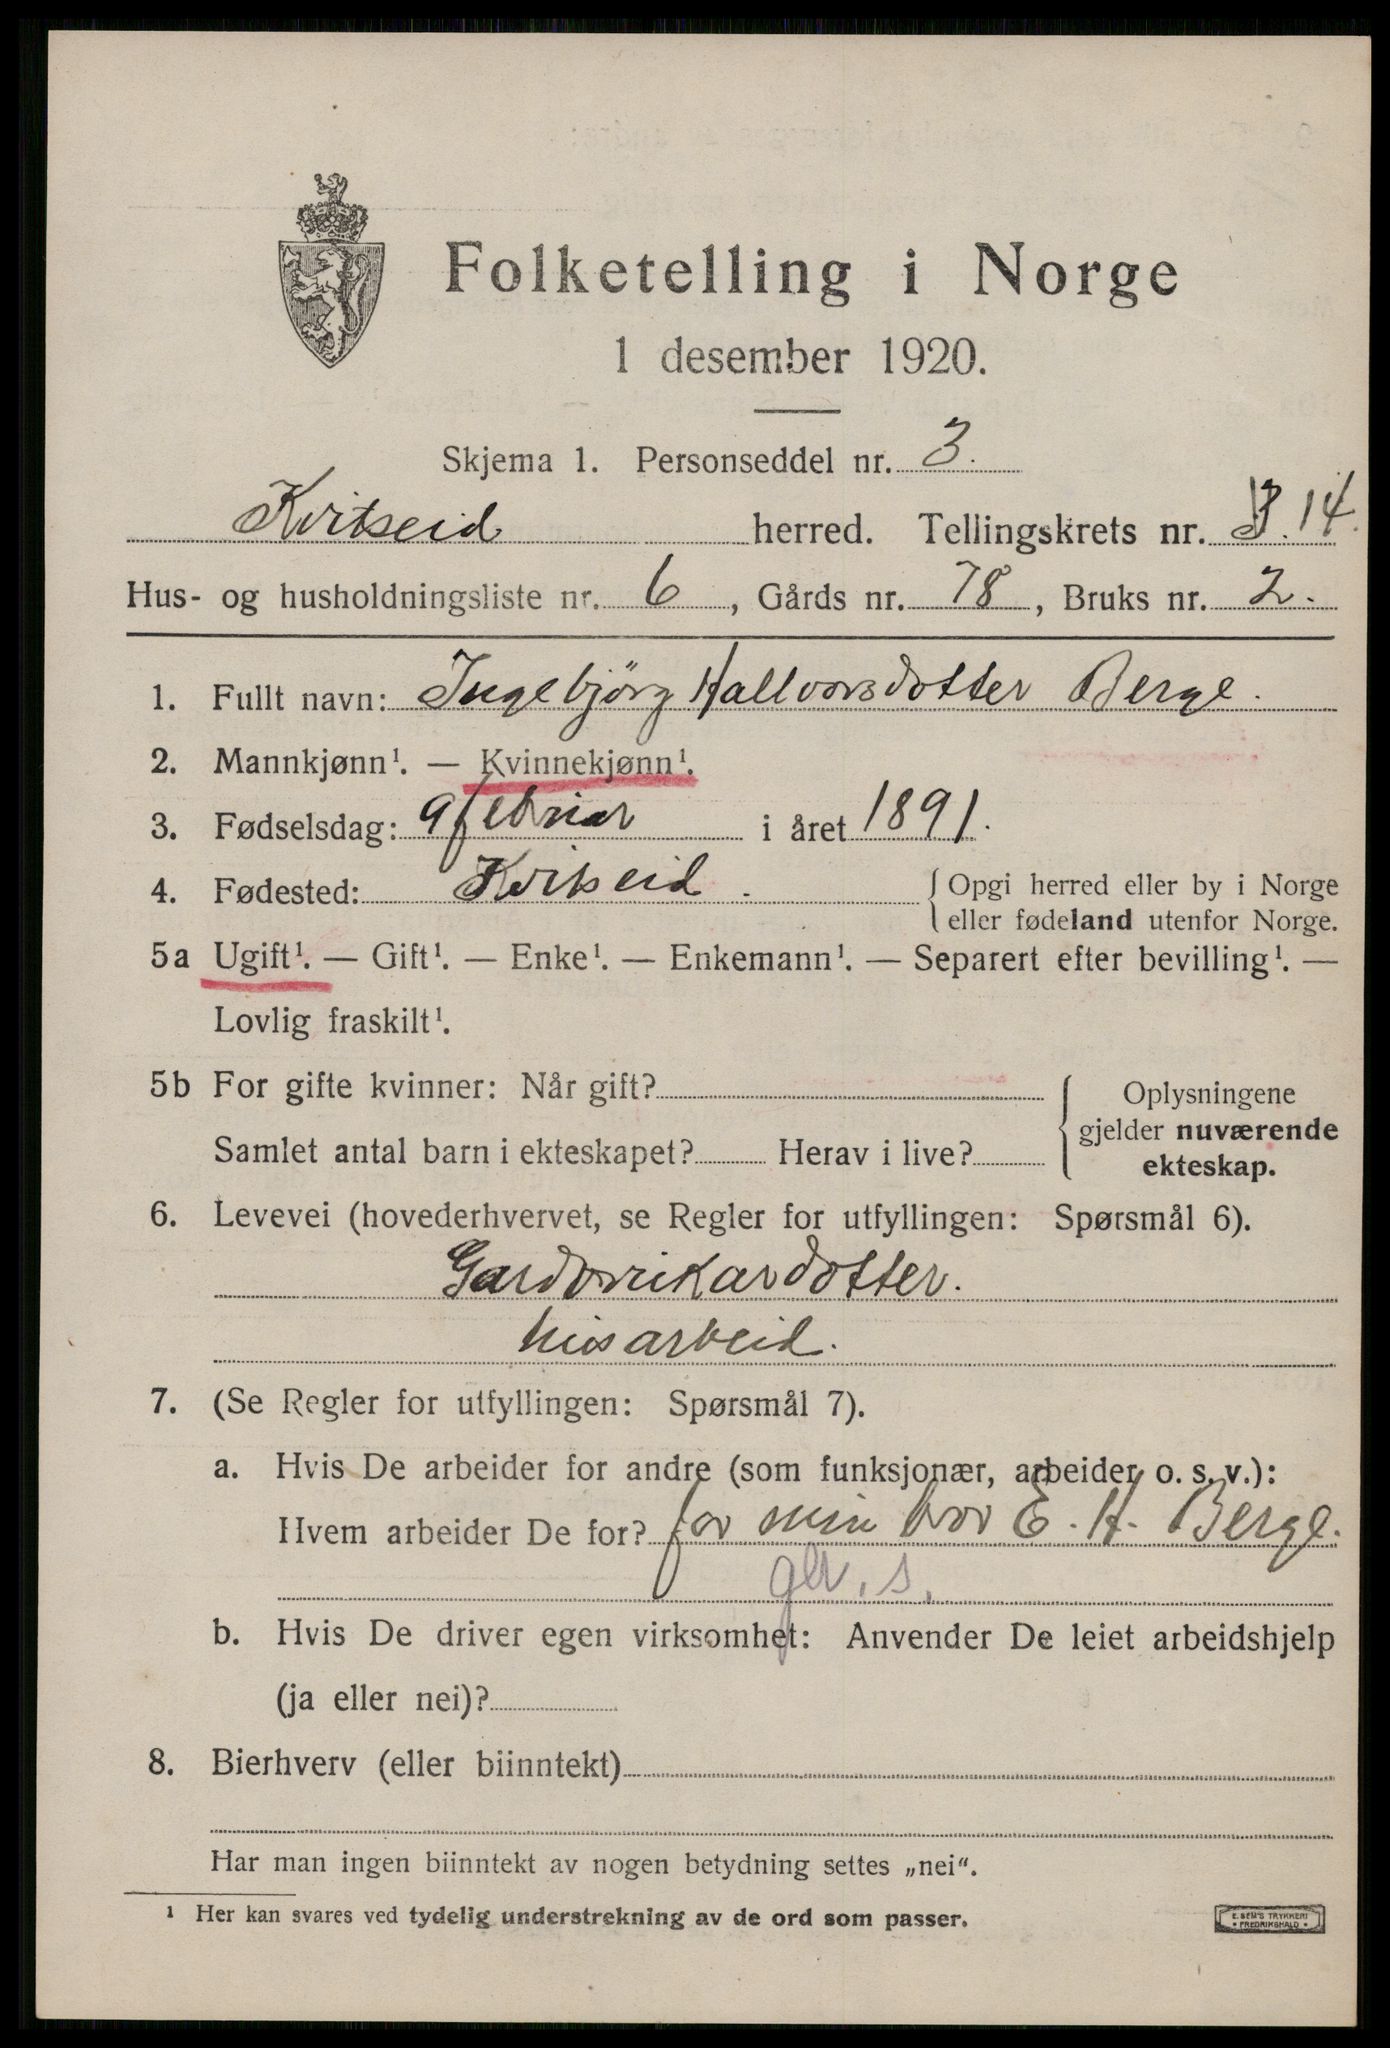 Folketelling i Norge
1 desember 1920.
Skjema 1. Personseddel nr. 3.
Kvitseid herred. Tellingskrets nr. 14.
Hus- og husholdningsliste nr. 6, Gårds nr. 78, Bruks nr. 2.
1. Fullt navn: Ingebjörg Hallvorsdotter Berge.
2. Mannkjønn¹. — Kvinnekjønn¹.
3. Fødselsdag: 9 februar i året 1891.
4. Fødested: Kvitseid. { Opgi herred eller by i Norge
eller fødeland utenfor Norge.
5a Ugift¹. — Gift¹. — Enke¹. — Enkemann¹. — Separert efter bevilling¹. —
Lovlig fraskilt¹.
5b For gifte kvinner: Når gift? { Oplysningene
gjelder nuværende
Samlet antal barn i ekteskapet? Herav i live?
ekteskap.
6. Levevei (hovederhvervet, se Regler for utfyllingen: Spørsmål 6).
Gardbrukardotter.
husarbeid.
7. (Se Regler for utfyllingen: Spørsmål 7).
a. Hvis De arbeider for andre (som funksjonær, arbeider o. s. v.):
Hvem arbeider De for? for min bror E. H. Berge.
gbr. s.
b. Hvis De driver egen virksomhet: Anvender De leiet arbeidshjelp
(ja eller nei)?
8. Bierhverv (eller biinntekt)
Har man ingen biinntekt av nogen betydning settes „nei“.
¹ Her kan svares ved tydelig understrekning av de ord som passer.
E. SEM'S TRYKKERI
• FREDRIKSHALD •